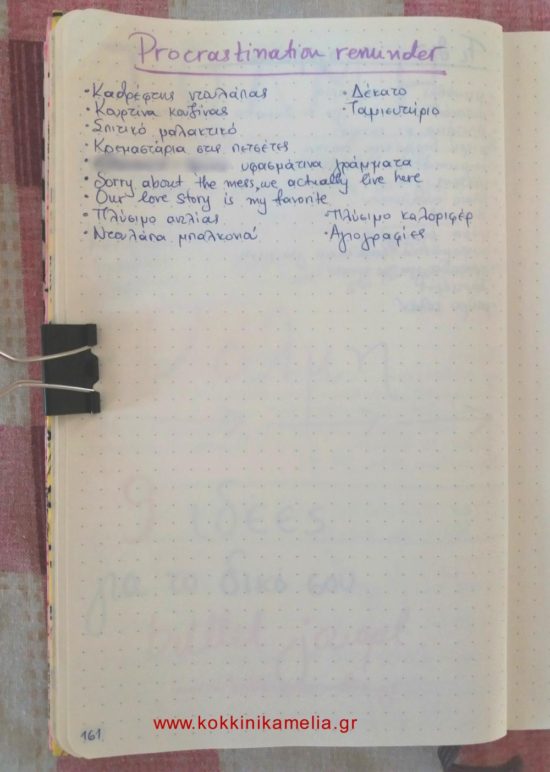 Procrastination reminder
· Καθρέφτης ντουλάπας
· Κουρτίνα κουζίνας
· Σπιτικό μαλακτικό
· Κρεμαστάρια στις πετσέτες
υφασμάτινα γράμματα
· Sorry about the mess, we actually live here
· Our love story is my favorite
· Πλύσιμο αυλίας
· Ντουλάπα μπαλκονιού
· Δέκατο
· Ταμιευτήριο
· Πλύσιμο καλοριφέρ
· Αγιογραφίες
9 ιδέες
για το δικό σου
bullet journal
161
www.kokkinikamelia.gr